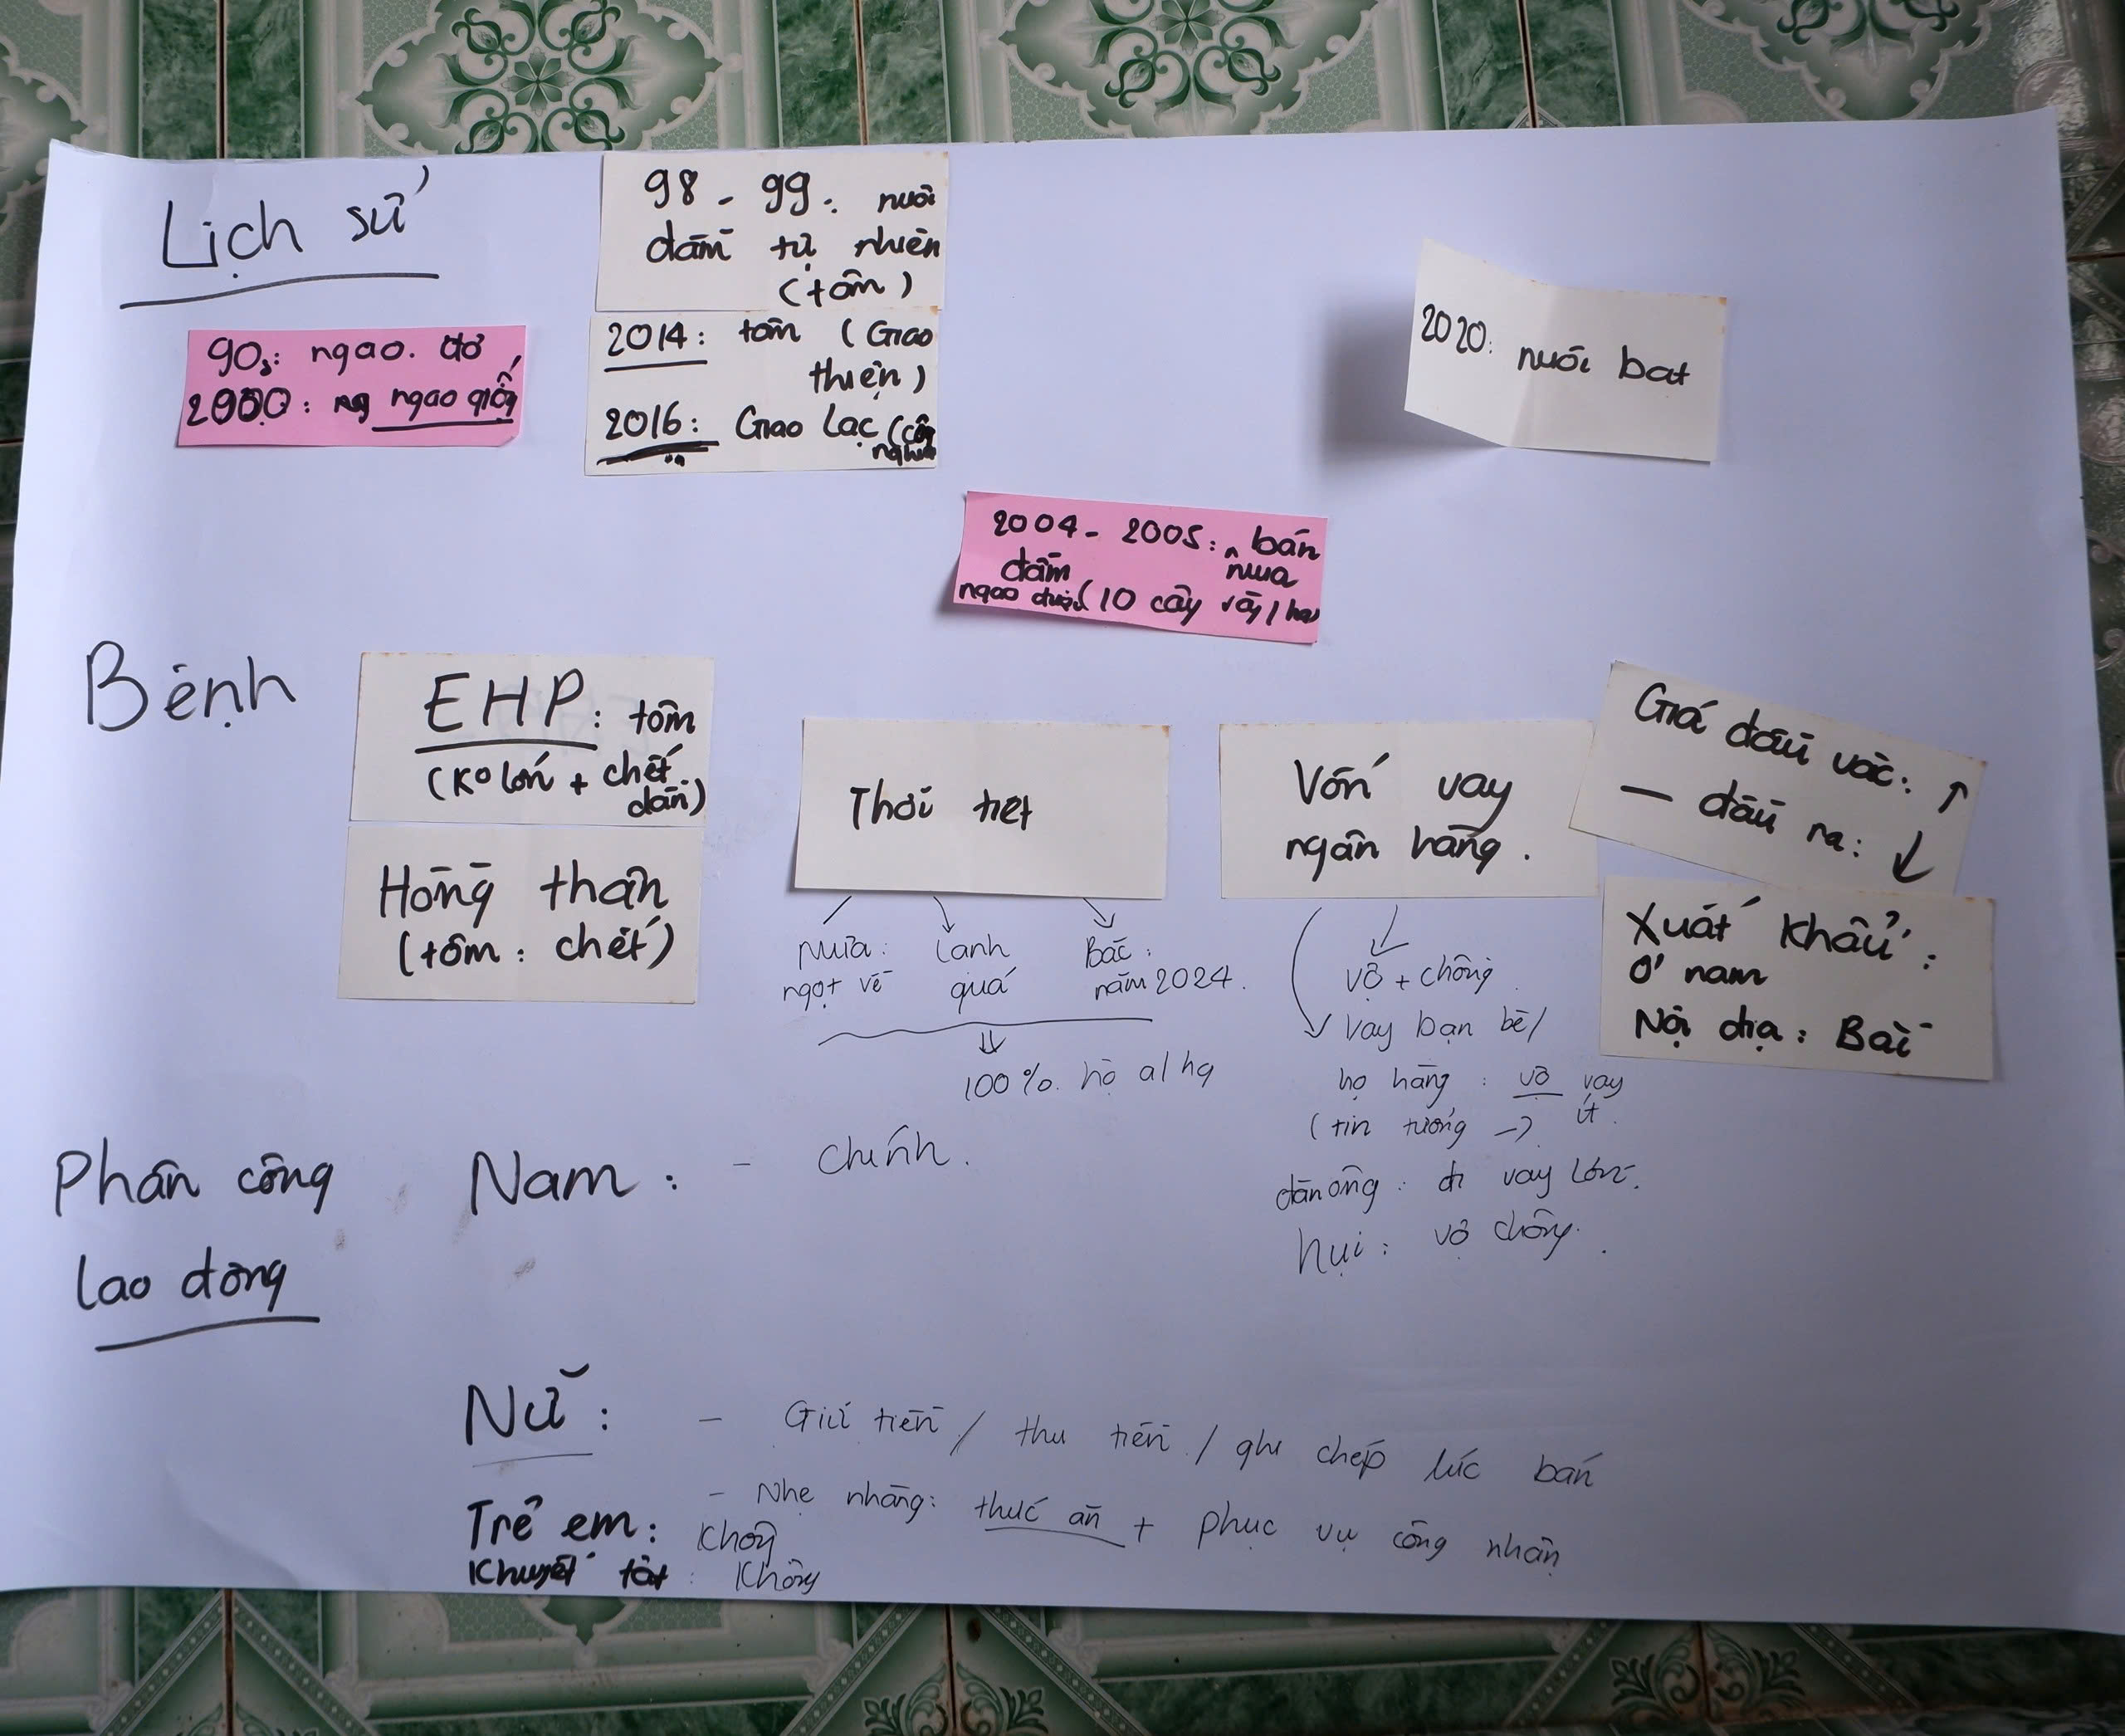 Lịch sử
98 - 99: nuôi
đầm tự nhiên
(tôm)
90s: ngao. dơ
2000: ngao giống
2014: tôm (Giao
thiện)
2016: Giao Lạc (công
nghiệp
2020: nuôi bạt
2004 - 2005: bán
đầm mua
ngao được (10 cây vàng/ha)
Bệnh
EHP: tôm
(Ko lớn + chết
dần)
Hồng thân
(tôm: chết)
Thời tiết
Mưa:
ngọt về
Lạnh
quá
Bão:
năm 2024.
100% hộ a/hg
Vốn vay
ngân hàng.
vợ + chồng
Vay bạn bè/
họ hàng: vợ vay
(tin tưởng → ít.
đàn ông: đi vay lớn.
hụi: vợ chồng.
Giá đầu vào: ↑
— đầu ra: ↓
Xuất khẩu:
Ở nam
Nội địa: Bắc
Phân công
lao động
Nam: - Chính.
Nữ: - Giữ tiền / thu tiền / ghi chép lúc bán
- Nhẹ nhàng: thức ăn + phục vụ công nhân
Trẻ em: Không
Khuyết tật: Không